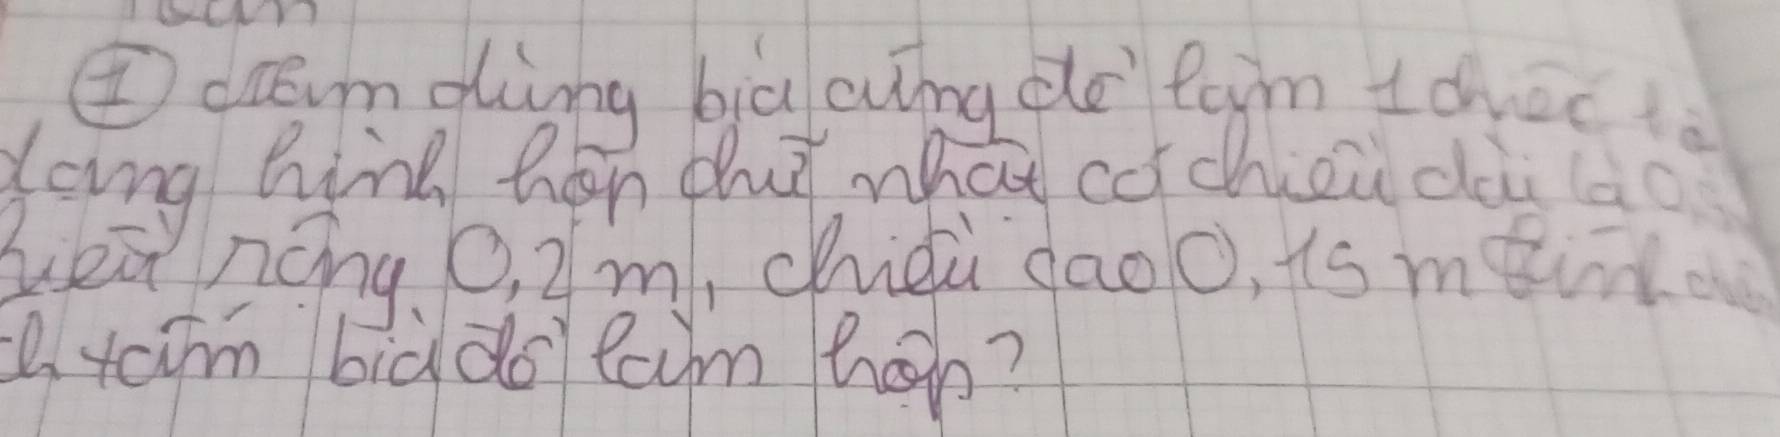 ① dùng bìa cứng để làm 1 chiếc
dạng hình hộp chữ nhật có chiều dài là 0,
rộng 0,2 m, chiều cao 0,15 m tính
tấm bìa để làm hộp?